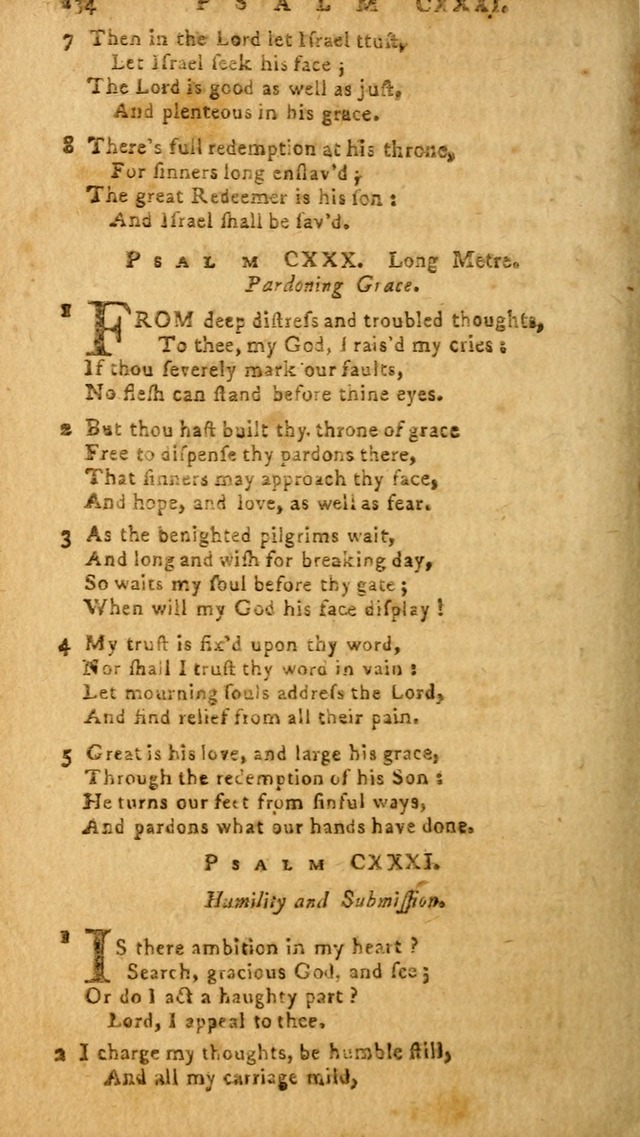 234 PSALM CXXXI.
7 Then in the Lord let Iſrael truſt,
Let Iſrael ſeek his face ;
The Lord is good as well as juſt,
And plenteous in his grace.
8 There's full redemption at his throne,
For ſinners long enſlav'd ;
The great Redeemer is his ſon :
And Iſrael ſhall be ſav'd.
PSALM CXXX. Long Metre.
Pardoning Grace.
1 FROM deep diſtreſs and troubled thoughts,
To thee, my God, I rais'd my cries :
If thou ſeverely mark our faults,
No fleſh can ſtand before thine eyes.
2 But thou haſt built thy. throne of grace
Free to diſpenſe thy pardons there,
That ſinners may approach thy face,
And hope, and love, as well as fear.
3 As the benighted pilgrims wait,
And long and wiſh for breaking day,
So waits my ſoul before thy gate ;
When will my God his face diſplay !
4 My truſt is fix'd upon thy word,
Nor ſhall I truſt thy word in vain :
Let mourning ſouls addreſs the Lord,
And find relief from all their pain.
5 Great is his love, and large his grace,
Through the redemption of his Son :
He turns our feet from ſinful ways,
And pardons what our hands have done.
PSALM CXXXI.
Humility and Submiſſion.
1 IS there ambition in my heart ?
Search, gracious God, and ſee ;
Or do I act a haughty part ?
Lord, I appeal to thee.
2 I charge my thoughts, be humble ſtill,
And all my carriage mild,